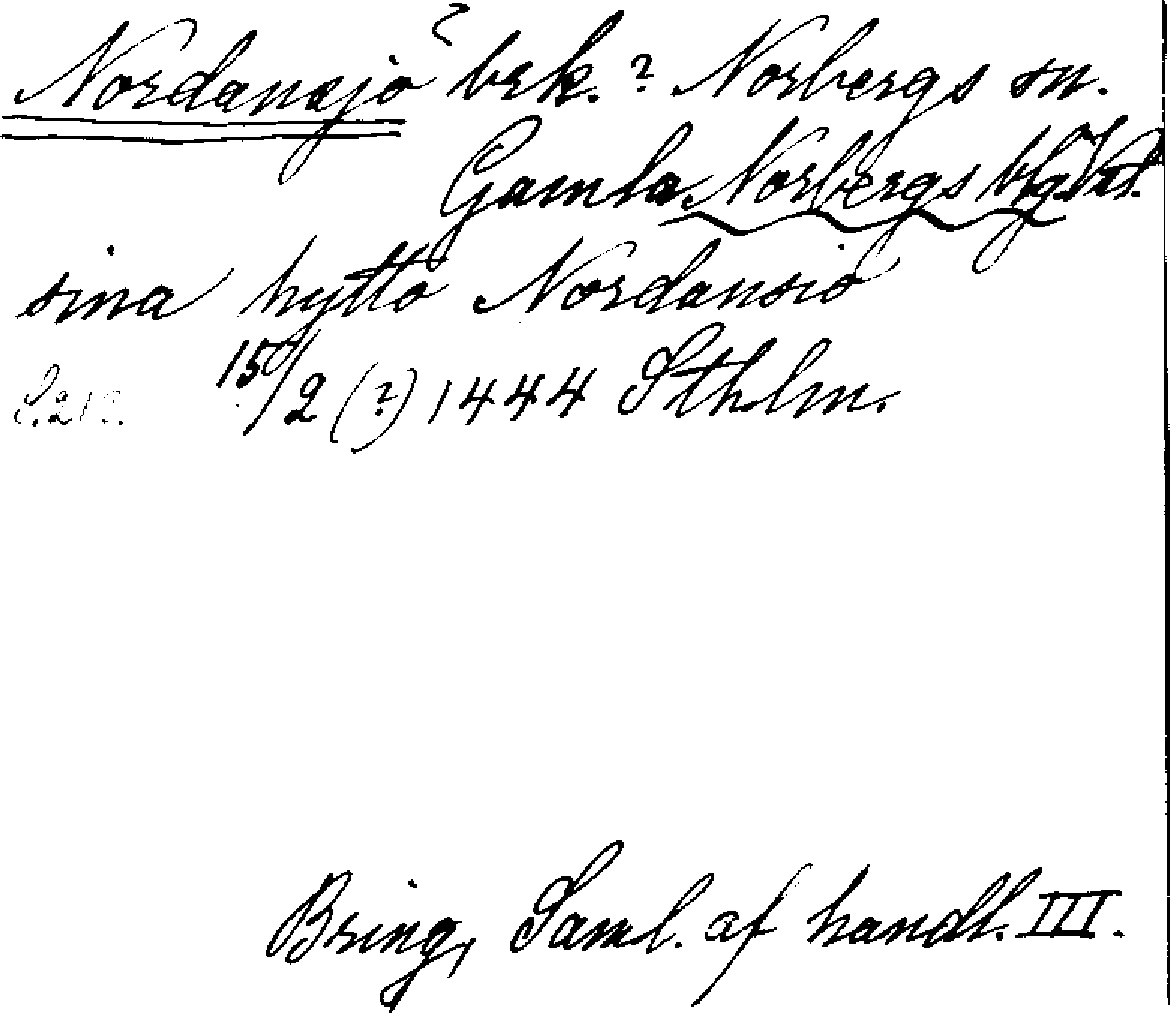 Nordansjö brk.? Norbergs sn.
Gamla Norbergs bg. Vstm.
sina hytto Nordansio
15/2 (?) 1444 Sthlm.
s. 213.
Bring, Saml. af handl. III.